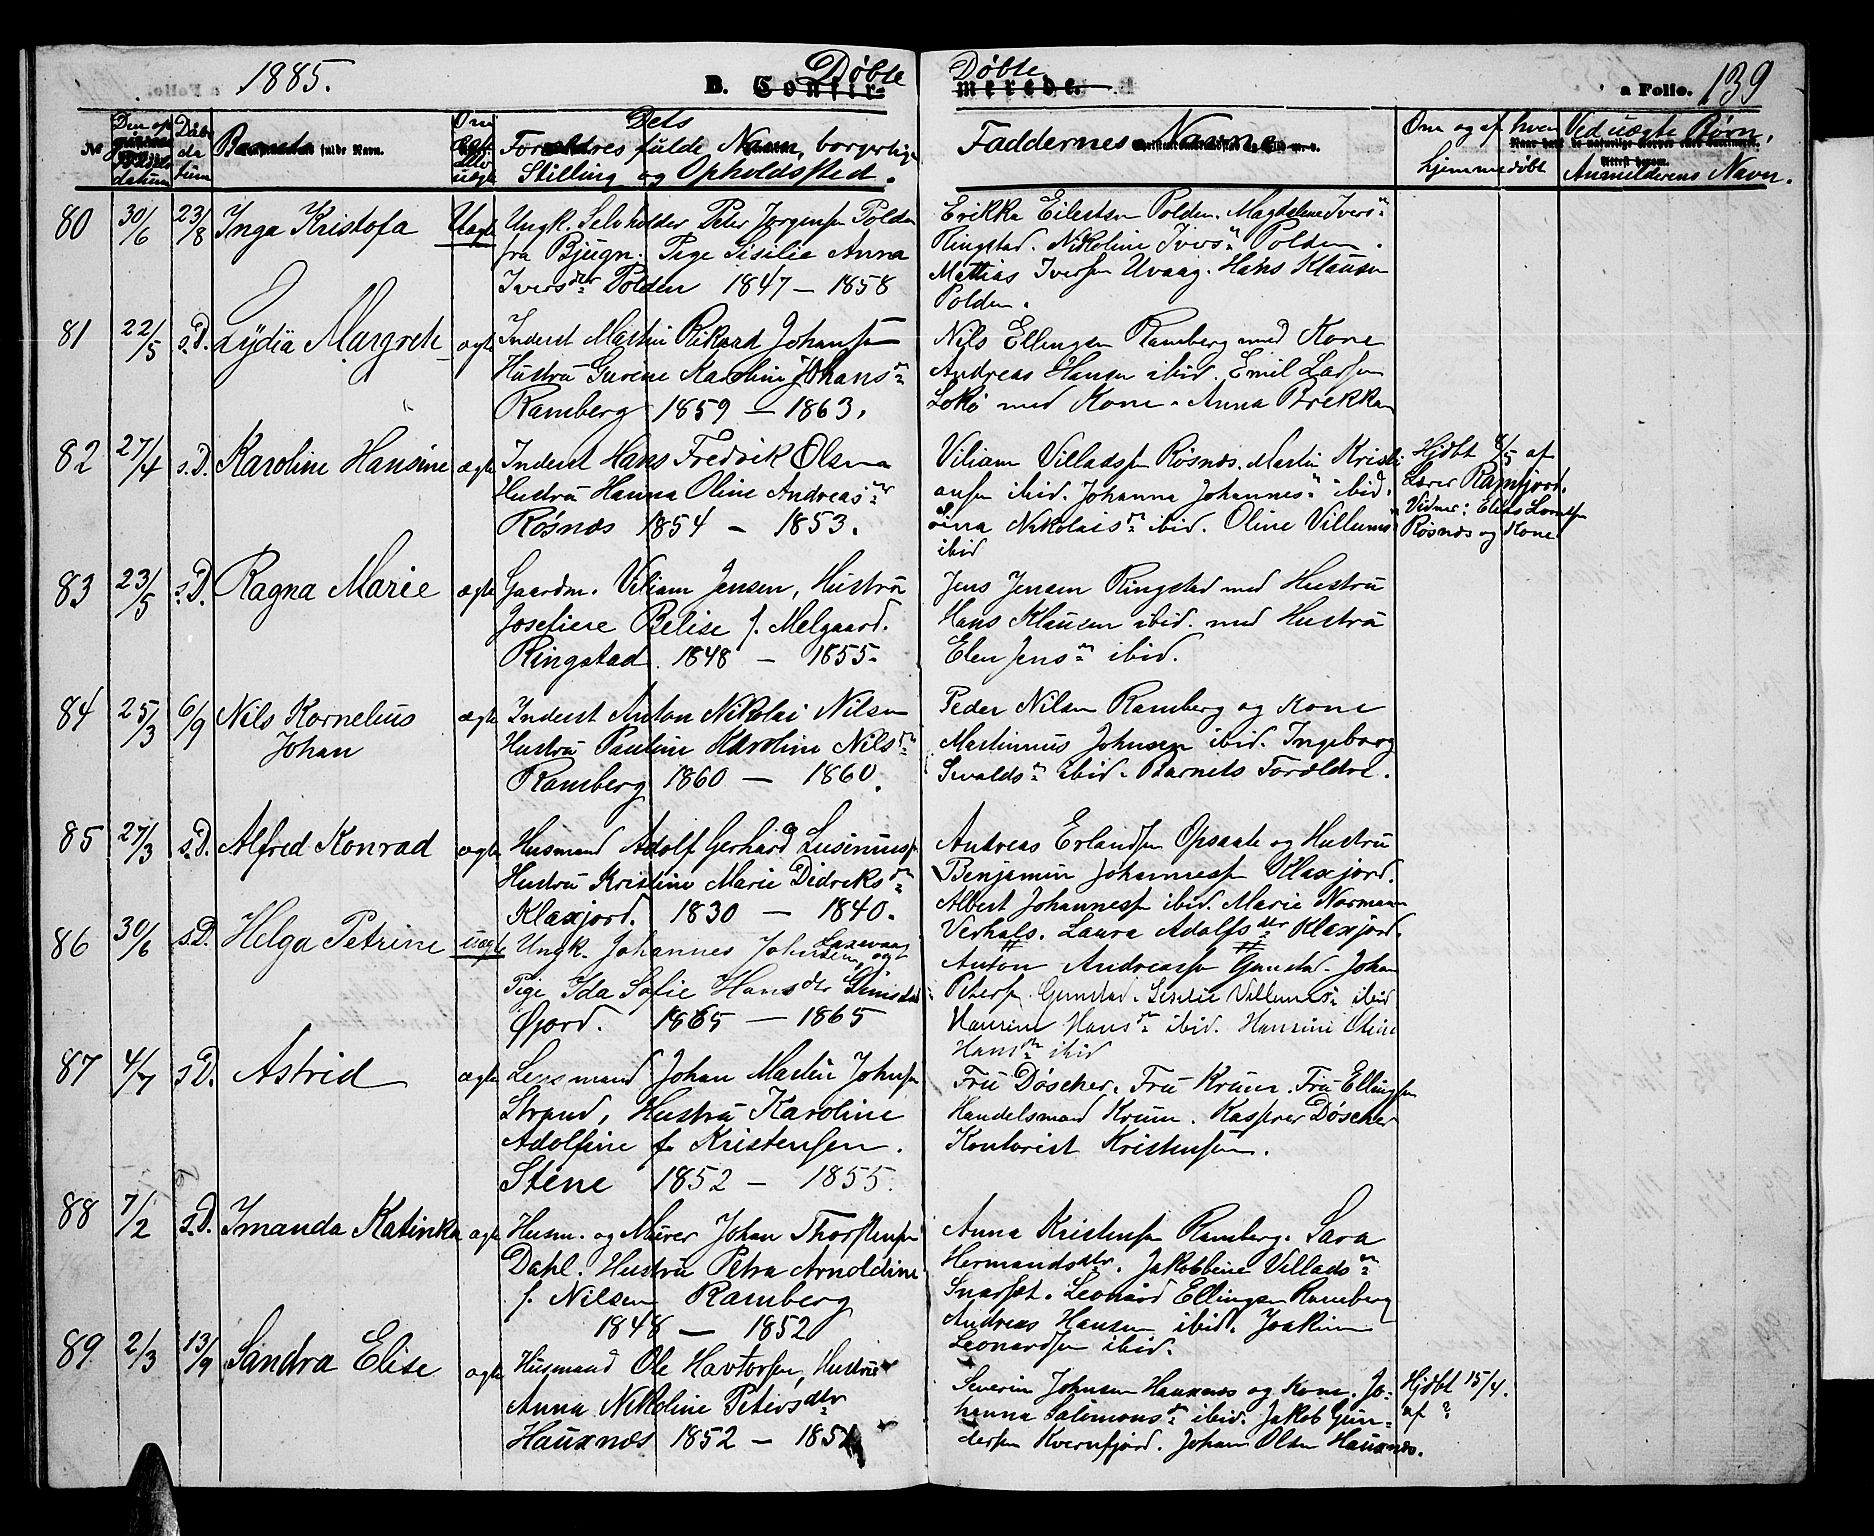 1885.
B. Confir- Döbte
Döbte merede.
a Folio. 139
No
Barnets fulde Navn.
Dets
Foreldres fulde Navn, borgerlige
Stilling og Opholdssted.
Faddernes Navne
Om og af hvem
hjemmedøbt
Ved uægte Børn,
Anmelderens Navn.
80 30/6 23/8 Inga Kristofa Uægte Ungk. Selvholder Peter Jørgensen Polden
fra Bjugn. Pige Sisilie Anna
Iversdtr Polden 1847 – 1858
Erikka Eilertsen Polden. Magdelene Ivers
Ringstad. Nikoline Ivers Polden.
Mattias Iversen Uvaag. Hans Klausen
Polden.
81 22/5 s.D. Lydia Margrete ægte Inderst Martin Rikard Johansen
Hustru Gurene Karoline Johans
Ramberg 1859 – 1863.
Nils Ellingsen Ramberg med Kone
Andreas Hansen ibid. Emil Larsen
med Kone. Anna Brekka
82 27/4 s.D. Karoline Hansine ægte Inderst Hans Fredrik Olsen
Hustru Hanna Oline Andreas
Røsnæs 1854 – 1853.
Viliam Villadsen Røsnæs. Martin Kristi
ansen ibid. Johanna Johannes ibid.
Nikolais ibid. Oline Villums
ibid
Hjdbt 8/5 af
Lærer Ramfjord.
Vidner: Elias
Røsnæs og Kone
83 23/5 s.D. Ragna Marie ægte Gaardm. Viliam Jensen, Hustru
Josefiene Belise f. Melgaard.
Ringstad. 1848 – 1855.
Jens Jensen Ringstad med Hustru
Hans Klausen ibid. med Hustru
Elen Jens ibid.
84 25/3 6/9 Nils Kornelius
Johan
ægte Inderst Anton Nikolai Nilsen
Hustru Pauline Karoline Nils
Ramberg 1860 – 1860.
Peder Nilsen Ramberg og Kone
Martinnus Johnsen ibid. Ingeborg
Sivalds ibid. Barnets Foreldre.
85 27/3 s.D. Alfred Konrad ægte Husmand Adolf Gerhard Lusinus
Hustru Kristine Marie Didreks
Klaxjord. 1830 – 1840.
Andreas Erlandsen Opsaate og Hustru
Benjamin Johannessen Klaxjord.
Albert Johannessen ibid. Marie Normann
Verhals. Laura Adolfsdtr Klaxjord.
86 30/6 s.D. Helga Petrine uægte Ungk. Johannes Johnsen Laxevaag og
Pige Ida Sofie Hansdtr
Øjord. 1865 – 1865
Anton Andreassen Gunstad. Johan
Petersen Gunstad. Villums ibid
Hansine Hans ibid. Hansine Oline
Hans ibid
87 4/7 s.D. Astrid ægte Lensmand Johan Martin Johnsen
Strand, Hustru Karoline
Adolfine f. Kristensen.
Stene 1852 – 1855.
Fru Døscher. Fru Krum. Fru Ellingsen
Handelsmand Krum. Kasper Døscher
Kontorist Kristensen.
88 7/2 s.D. Imanda Katinka ægte Husm. og Murer Johan Thorstensen
Dahl. Hustru Petra Arnoldine
f. Nilsen Ramberg
1848 – 1852
Anna Kristensen Ramberg. Sara
Hermandsdtr. Jakobbine Villads
Snarset. Leonard Ellingsen Ramberg
Andreas Hansen ibid. Joakim
Leonardsen ibid.
89 2/3 13/9 Sandra Elise ægte Husmand Ole Havtorsen, Hustru
Anna Nikoline Petersdtr
Hauxnæs 1852 –
Severin Johnsen Hauxnæs og Kone. Jo-
hanna Salomons ibid. Jakob Gun-
dersen Kvernfjord. Johan Olsen Hauxnæs.
Hjdbt 15/4.
af ?